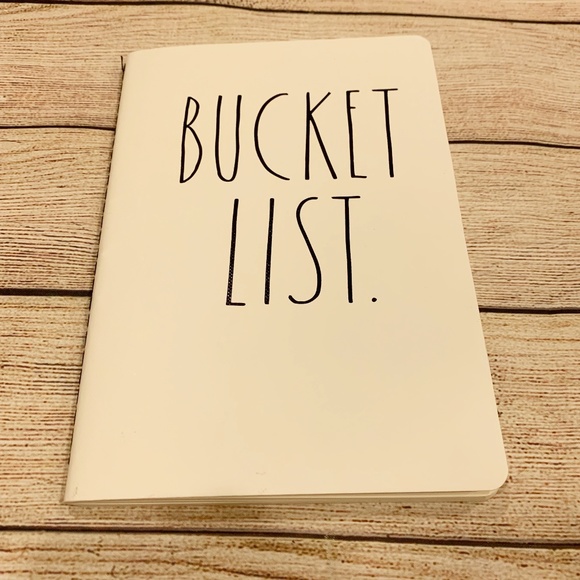 BUCKET
LIST.